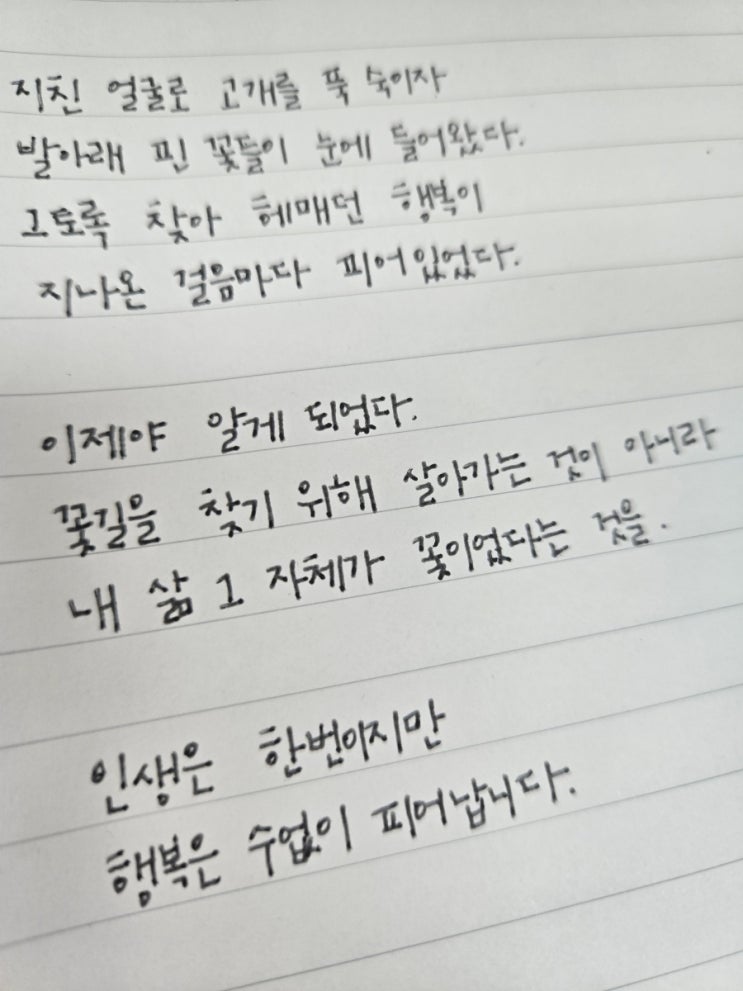 지친 얼굴로 고개를 푹 숙이자
발아래 핀 꽃들이 눈에 들어왔다.
그토록 찾아 헤매던 행복이
지나온 걸음마다 피어있었다.
이제야 알게 되었다.
꽃길을 찾기 위해 살아가는 것이 아니라
내 삶 그 자체가 꽃이었다는 것을.
인생은 한번이지만
행복은 수없이 피어납니다.